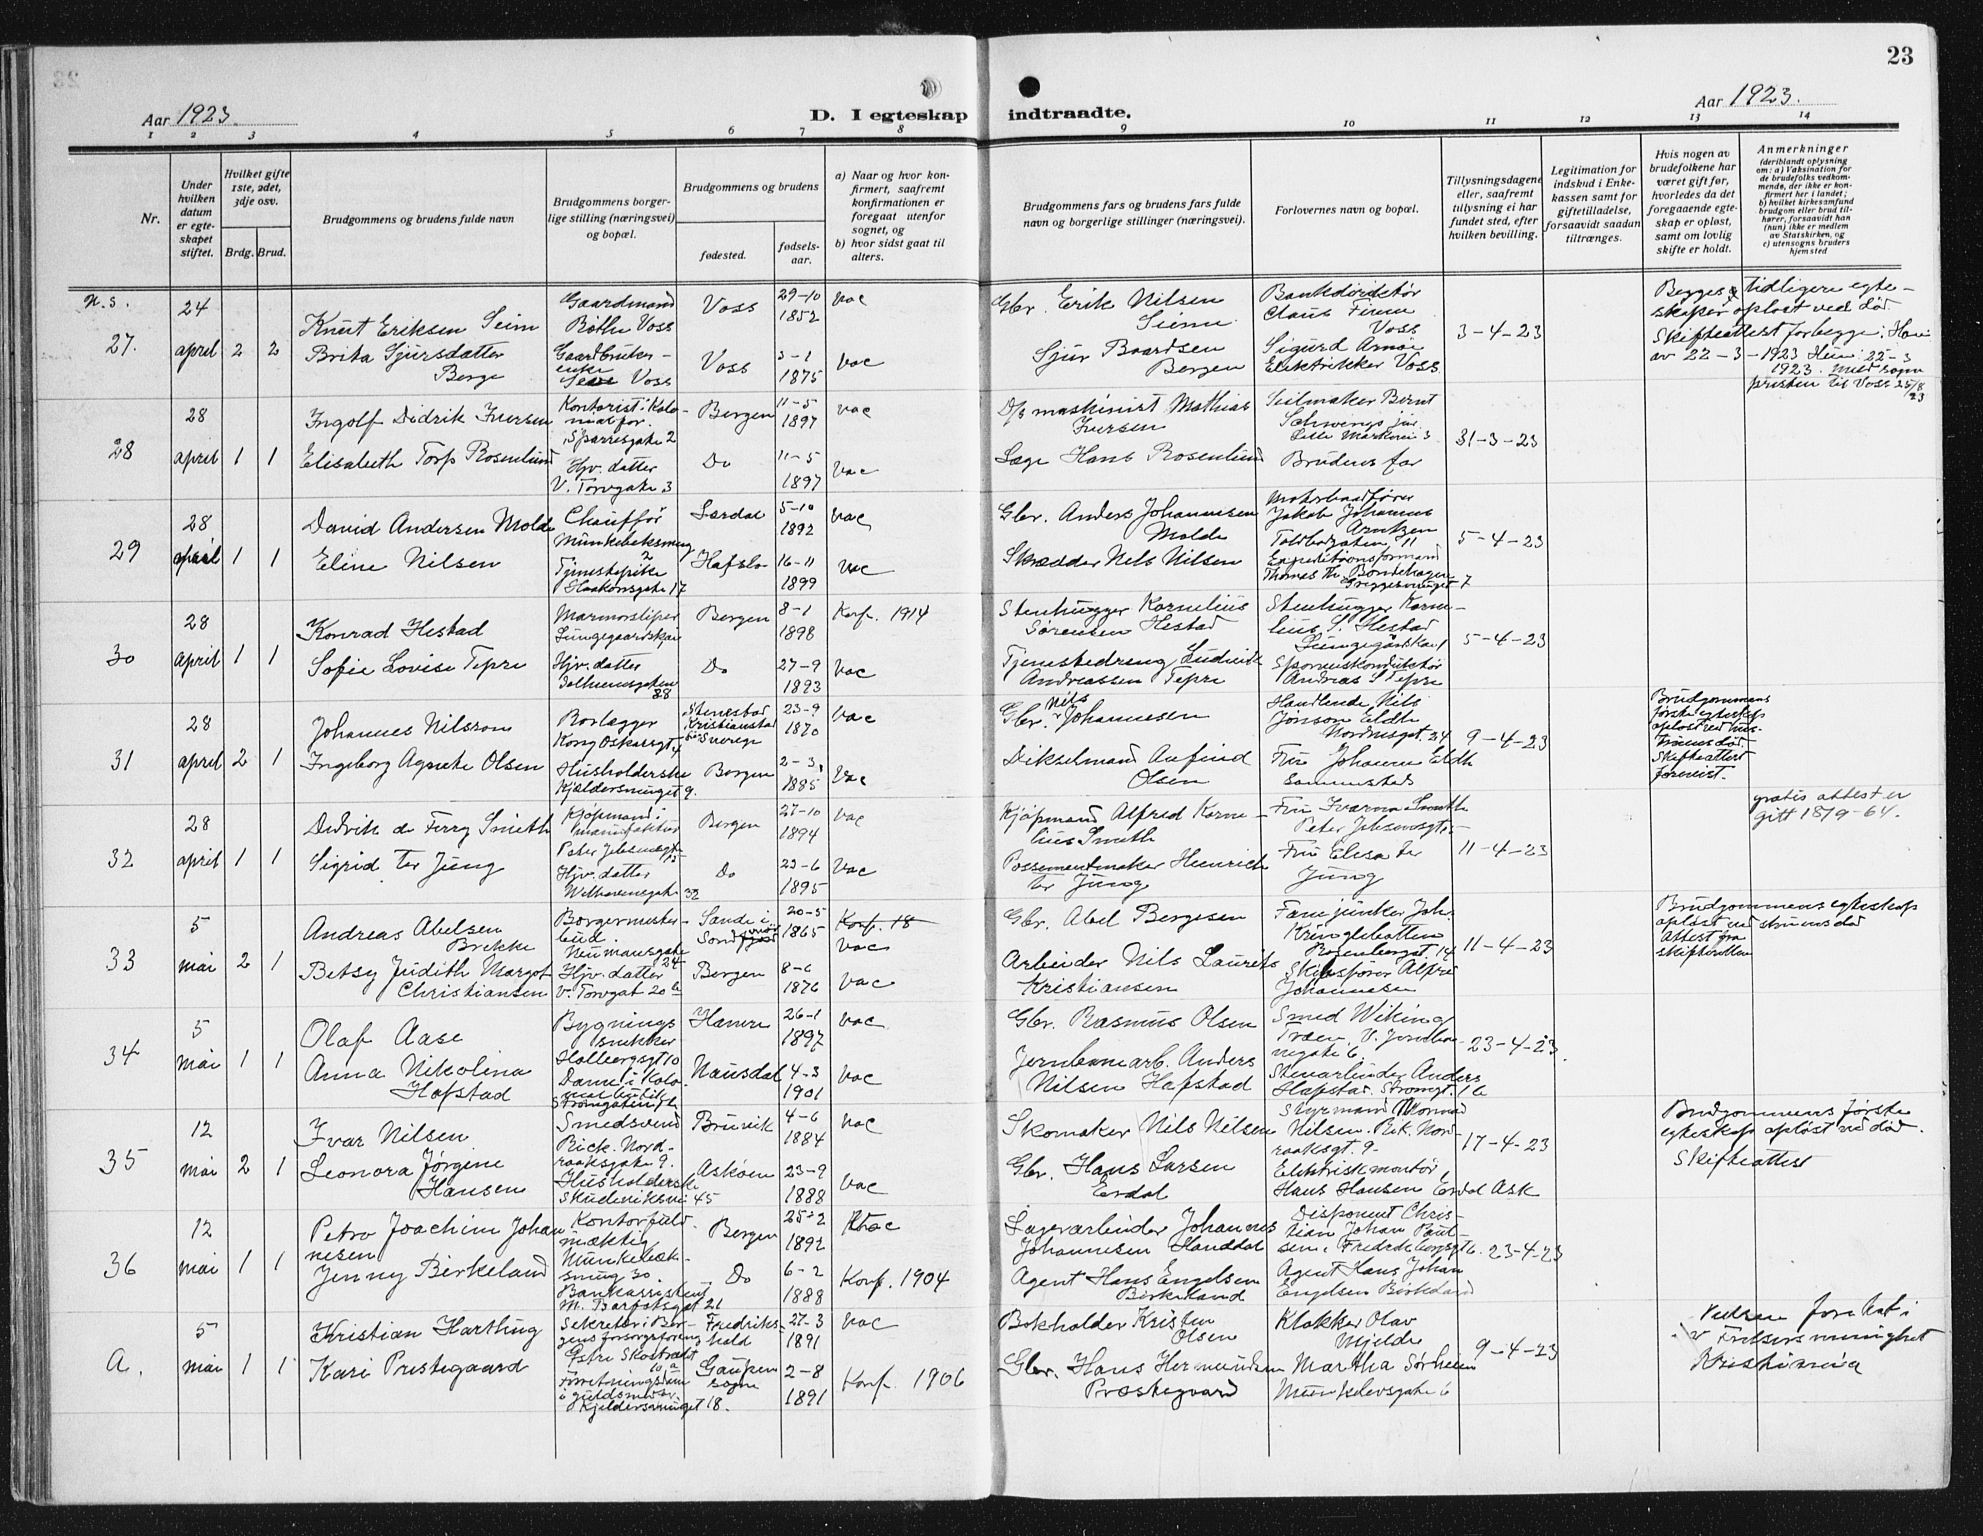 23
Aar 1923.
D. I egteskap indtraadte.
Aar 1923.
1 2 3 4 5 6 7 8 9 10 11 12 13 14
Nr.
Under hvilken datum er egteskapet stiftet.
Hvilket gifte 1ste, 2det, 3dje osv.
Brdg. Brud.
Brudgommens og brudens fulde navn
Brudgommens borgerlige stilling (næringsvei) og bopæl.
Brudgommens og brudens
fødested.
fødselsaar.
a) Naar og hvor konfirmert, saafremt konfirmationen er foregaat utenfor sognet, og
b) hvor sidst gaat til alters.
Brudgommens fars og brudens fars fulde navn og borgerlige stillinger (næringsvei).
Forlovernes navn og bopæl.
Tillysningsdagene eller, saafremt tillysning ei har fundet sted, efter hvilken bevilling.
Legitimation for indskud i Enkekassen samt for giftetilladelse, forsaavidt saadan tiltrænges.
Hvis nogen av brudefolkene har været gift før, hvorledes da det foregaaende egteskap er opløst, samt om lovlig skifte er holdt.
Anmerkninger
(deriblandt oplysning om: a) Vaksination for de brudefolks vedkommende, der ikke er konfirmert her i landet; b) hvilket kirkesamfund brudgom eller brud tilhører, forsaavidt han (hun) ikke er medlem av Statskirken, og c) utensogns bruders hjemsted
27. 24 april 2 2
Knut Eriksen Seim
Gaardmand
Voss
29-10 1852
vac
Gbr. Erik Nilsen Seim
Bankdirektør Claus Finne Voss
3-4-23
Brita Sjursdatter Berge
Voss
3-1 1875
vac
Sjur Baardsen Bergen
Sigurd
Elektrikker Voss
Begges tidligere egteskaper opløst ved død.
Skifteattest for begge: Han av 22-3-1923 Hun: 22-3 1923.
presten til Voss 25/8 23
28 28 april 1 1
Ingolf Didrik Iversen
Kontorist i Kolonialfor. Sparresgate 2
Bergen
11-5 1897
vac
D/s maskinist Mathias Iversen
Seilmaker Bernt
31-3-23
Elisabeth Torp Rosenlund
Hjv. datter V. Torvgate 3
Do
11-5 1897
vac
Læge Hans Rosenlund
Brudens far
29 28 april 1 1
David Andersen Molde
Chauffør
Lærdal
5-10 1892
vac
Gbr. Anders Johannesen Molde
Motorbaadfører Jakob Johannes Arntzen
5-4-23
Eline Nilsen
Tjenestepike Haakonsgate 17
Hafslo
16-11 1899
vac
Skrædder Nils Nilsen
30 28 april 1 1
Konrad Hestad
Marmorsliper
Bergen
8-1 1898
Konf. 1914
Stenhugger Kornelius Sørensen Hestad
Stenhugger Kornelius S. Hestad
5-4-23
Sofie Lovise Tepre
Hjv. datter
Do
27-9 1893
vac
Tjenestedreng Ludvik Andreassen Tepre
Andreas S Tepre
31 28 april 2 1
Johannes Nilsson
Rørlægger Kong Oskarsgt.
Kristianstad Sverige
23-9 1870
vac
Gbr. Nils Johannesen
Handlende Nils Jønson Eldh
9-4-23
Ingeborg Agnete Olsen
Husholderske Kjældersmuget 9.
Bergen
2-3 1885
vac
Dikselmand Anfind Olsen
Fru Johanne Eldh sammesteds
Brudgommens første egteskap opløst ved hustruens død. Skifteattest forevist.
32 28 april 1 1
Didrik de Ferry Smith
Kjøpmand i manufaktur
Bergen
27-10 1894
vac
Kjøpmand Alfred Kornelius Smith
11-4-23
gratis attest er gitt 18/9-64.
Sigrid ter Jung
Hjv. datter 32
Do
23-6 1895
vac
Possementmaker Heinrich ter Jung
Fru Elisa ter Jung
33 5 mai 2 1
Andreas Abelsen Brekke
Neumannsgate 24
Sande i
20-5 1865
Konf. 18
vac
Gbr. Abel Bergesen
Fanejunker Joh. Kringlebotten
11-4-23
Betsy Judith Margot Christiansen
Hjv. datter V. Torvgat 20
Bergen
8-6 1876
vac
Arbeider Nils Laurits Kristiansen
Skibsfører Alfred Johannesen
Brudgommens egteskap opløst ved hustruens død Attest fra skifteretten
34 5 mai 1 1
Olaf Aase
Bygningssnekker Holbergsgt 10
26-1 1897
vac
Gbr. Rasmus Olsen
Smed Wiking
23-4-23.
Anna Nikolina Hafstad
Naustdal
4-3 1901
vac
Jernbanearb. Anders Nilsen Hafstad
Stenarbeider Anders Hafstad. Strømgt. 16
35 12 mai 2 1
Ivar Nilsen
Smedsvend Rick. Nordraaksgate 9.
Bruvik
4-6 1884
vac
Skomaker Nils Nilsen
Styrmand Konrad Nilsen. Rik. Nordraaksgt. 9-
17-4-23
Leonora Jørgine Hansen
Husholderske Skuteviksvei 45
Askøen
23-9 1888
vac
Gbr. Hans Larsen Erdal
Elektriskmontør Hans Hansen Erdal Ask
Brudgommens første egteskap opløst ved død. Skifteattest
36 12 mai 1 1
Petro Joachim Johannesen
Kontorfuldmægtig Munkebæksmug 30.
Bergen
25-2 1892
vac
Lagerarbeider Johannes Johannesen Handdal
Disponent Christian Johan Paulsen, Fredriksbergsgt 6.
23-4-23
Jenny Birkeland
Bankassistent M. Barfotsgt 21
Do
6-2 1888
Konf. 1904
Agent Hans Engelsen Birkeland
Agent Hans Johan Engelsen Birkeland
A. 5 mai 1 1
Kristian Harthug
Sekretær i Bergens forsorgsforening
Fredrikshald
27-3 1891
vac
Bokholder Kristen Olsen
Klokker Olav Mjelde
9-4-23
Kari Prestegaard
Kjeldersmuget 18.
Gaupen sogn
2-8 1891
Konf. 1906
Gbr. Hans Hermundsen Præstegaard
Martha Sørheim
Vielsen foretat i v Frelsers menighet Kristiania